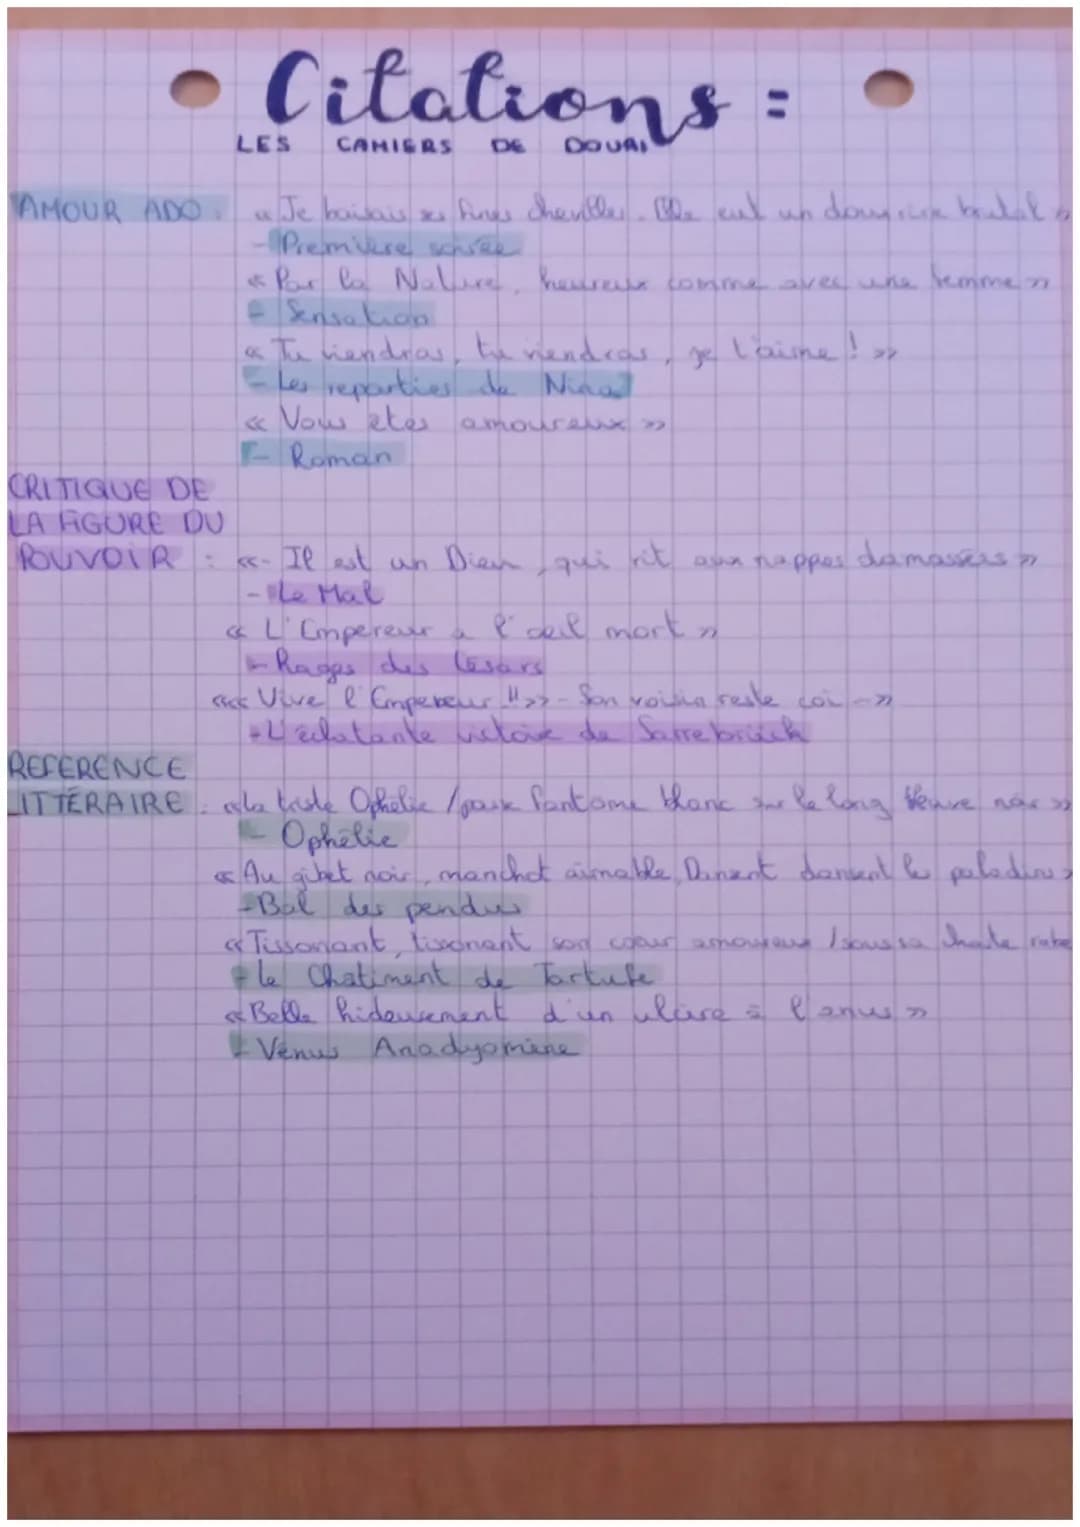 Citations :
LES CAHIERS DE DOUAI
AMOUR ADO : « Je baisais ses fines chevilles. Elle eut un doux rire brutal »
- Première soirée
« Par la Nature, heureux comme avec une femme »
- Sensation
« Tu viendras, tu viendras, je t'aime ! »
- Les reparties de Nina
« Vous êtes amoureux »
- Roman
CRITIQUE DE
LA FIGURE DU
POUVOIR : «- Il est un Dieu, qui rit aux nappes damassées »
- Le Mal
« L'Empereur a l'œil mort »
- Rages des Césars
«« Vive l'Empereur !! »» - Son voisin reste coi -»
- L'éclatante victoire de Sarrebrück
REFERENCE
LITTÉRAIRE : « la triste Ophélie / passe fantome blanc sur le long fleuve noir »
- Ophélie
« Au gibet noir, manchot aimable, Dansent dansent les paladins »
- Bal des pendus
« Tissonant, tisonant son cœur amoureux / sous sa chaste robe
- le Chatiment de Tartufe
« Belle hideusement d'un ulcère à l'anus »
- Vénus Anadyomène